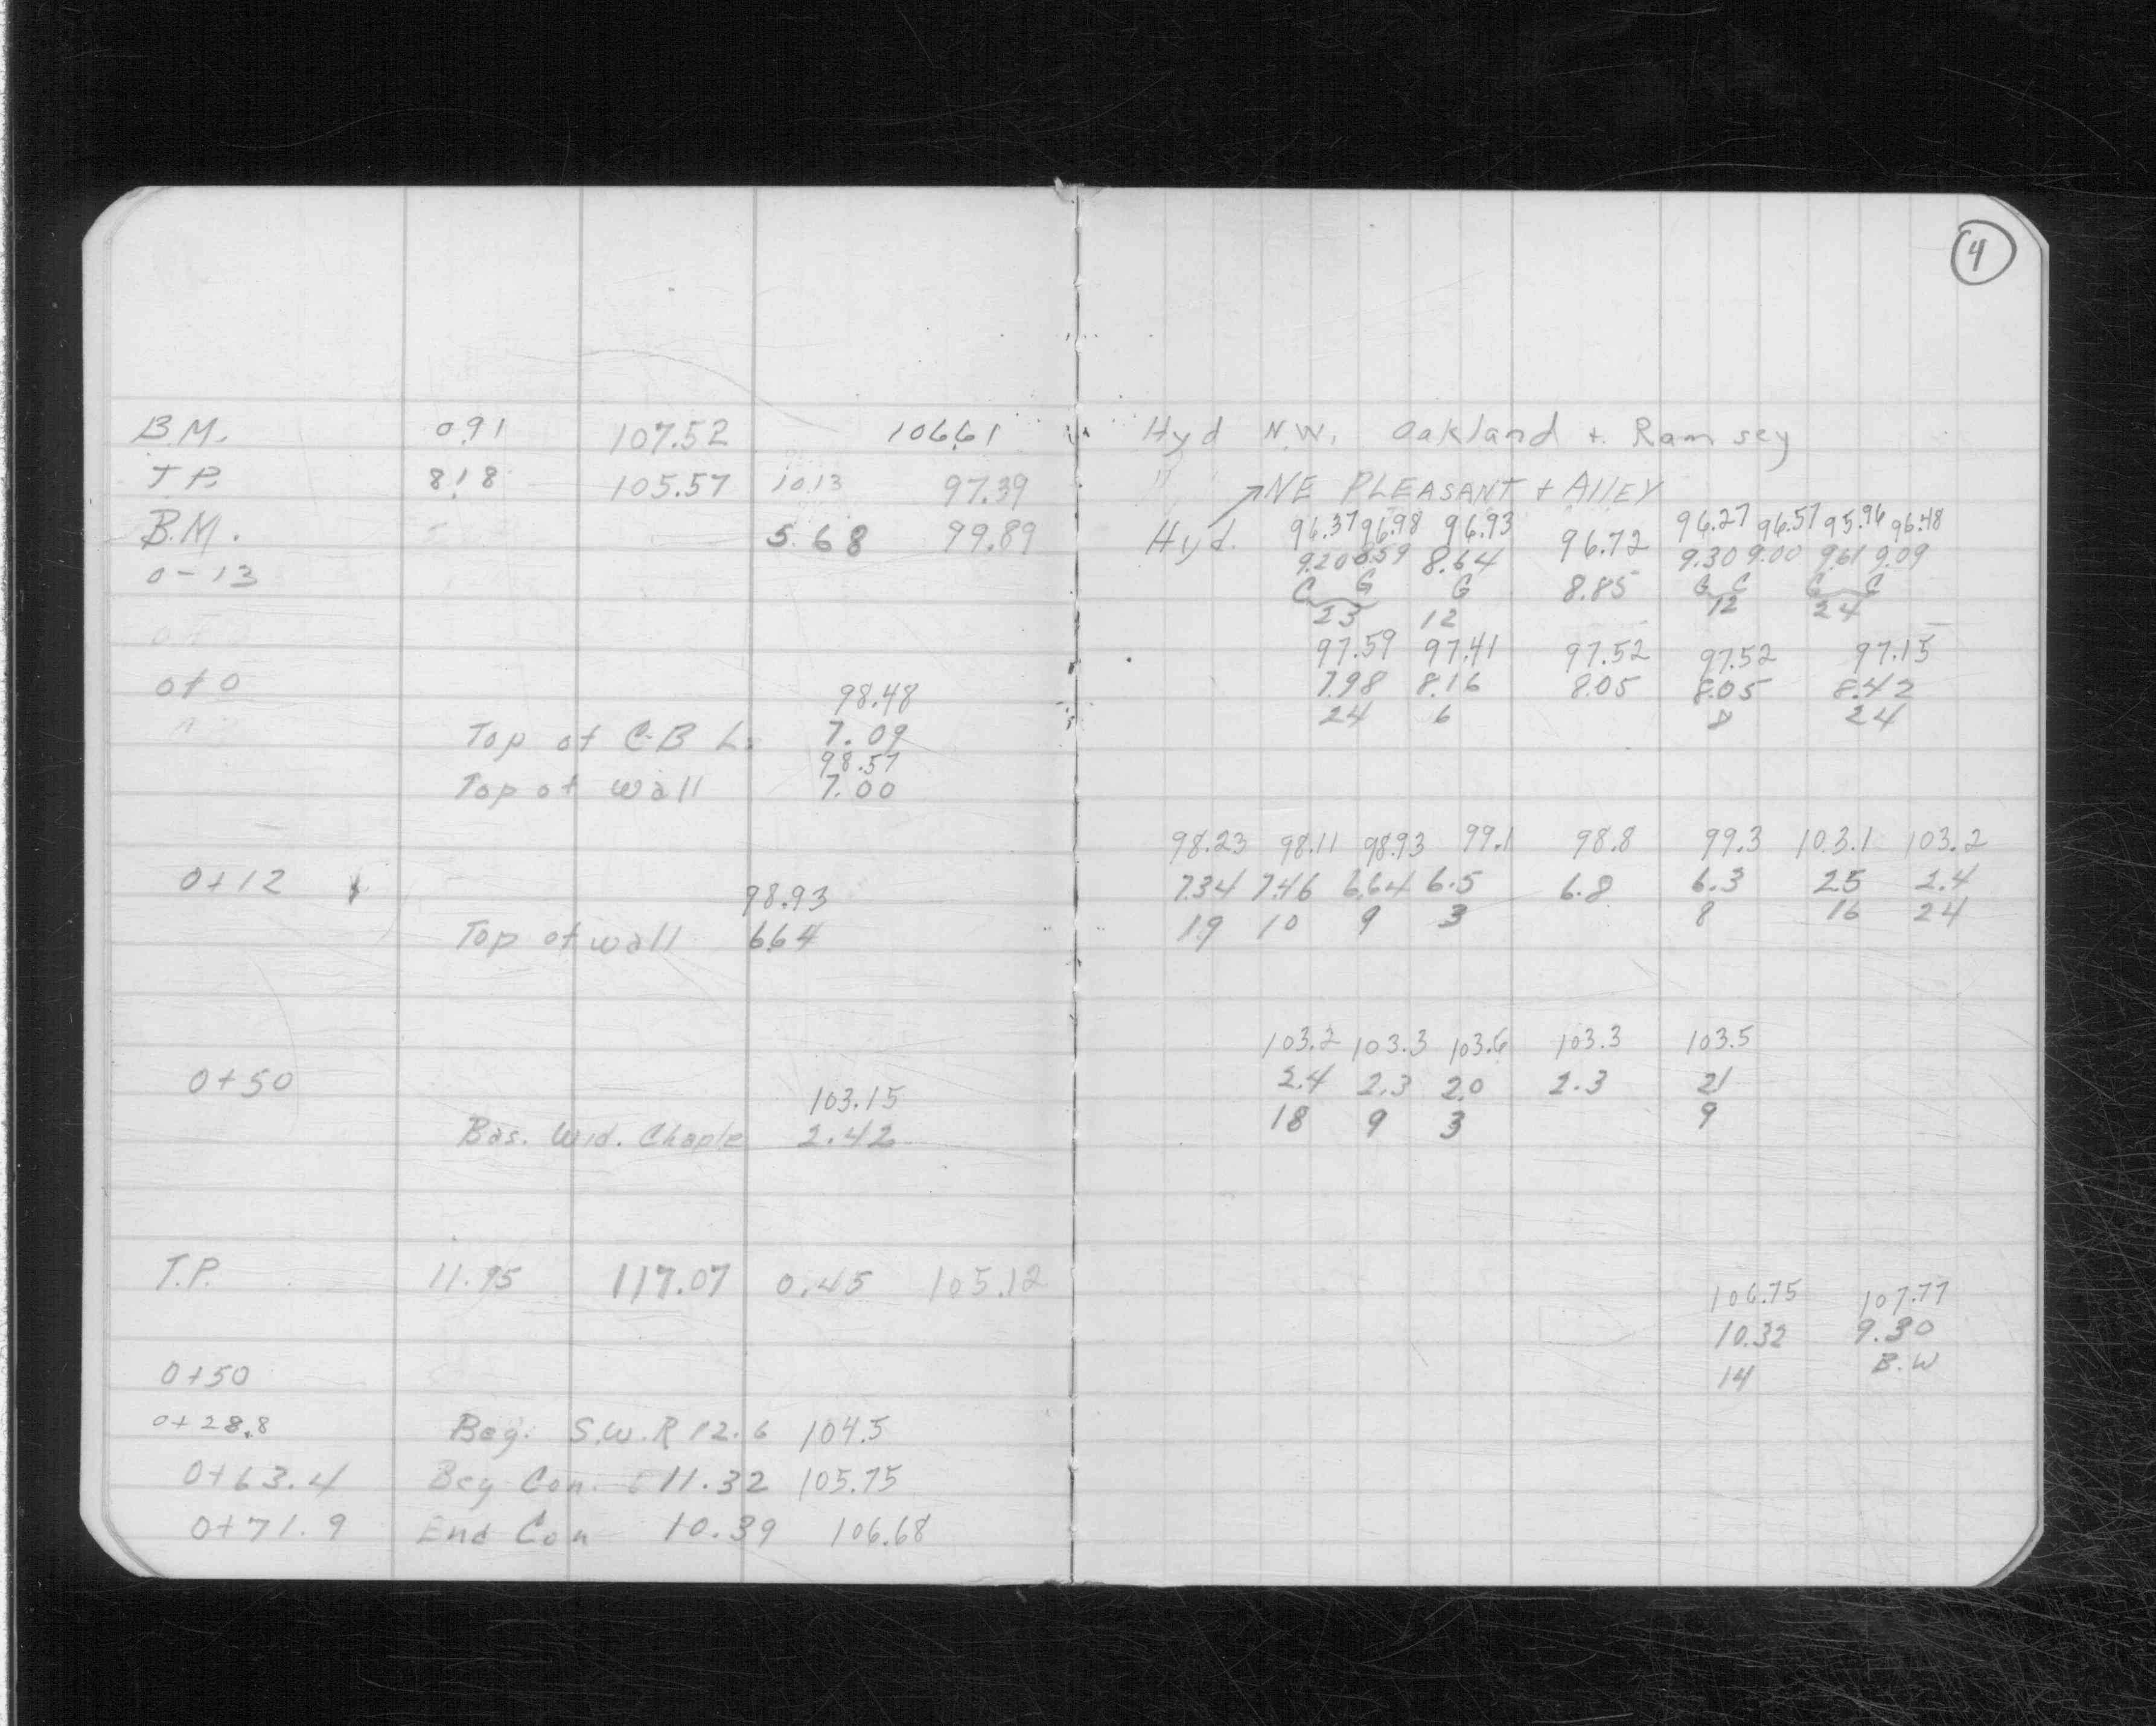 4
B.M. 0.91 107.52 106.61 Hyd N.W. Oakland + Ramsey
T.P. 8.18 105.57 10.13 97.39 NE PLEASANT + AllEY
B.M. 5.68 99.89 Hyd.
96.37 96.98 96.93 96.72 96.27 96.57 95.96 96.48
0-13 9.20 8.59 8.64 8.85 9.30 9.00 9.61 9.09
C G G G C G C
23 12 12 24
97.59 97.41 97.52 97.52 97.15
0+0 98.48 7.98 8.16 8.05 8.05 8.42
24 6 8 24
Top of C-B L. 7.09
98.57
Top of wall 7.00
98.23 98.11 98.93 99.1 98.8 99.3 103.1 103.2
0+12 98.93 7.34 7.46 6.64 6.5 6.8 6.3 2.5 2.4
19 10 9 3 8 16 24
Top of wall 6.64
103.2 103.3 103.6 103.3 103.5
0+50 103.15 2.4 2.3 2.0 2.3 2.1
18 9 3 9
Bas. Wid. Chaple 2.42
T.P. 11.95 117.07 0.45 105.12
106.75 107.77
10.32 9.30
14 B.W
0+50
0+28.8 Beg. S.W. R 12.6 104.5
0+63.4 Beg Con. 11.32 105.75
0+71.9 End Con 10.39 106.68